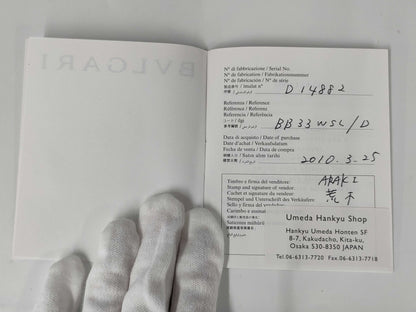 BVLGARI
N° di fabbricazione / Serial No.
N° de fabrication / Fabrikationsnummer
N° de fabricación / N° de série
D 14882
Référence / Reference
Referencia / Referência
BB33WSL/D
Data di acquisto / Date of purchase
Date d'achat / Verkaufsdatum
Fecha de venta / Data de compra
2010.3-25
Timbro e firma del venditore
Stamp and signature of vendor
Cachet et signature du vendeur
Stempel und Unterschrift des Verkäufers
Sello y firma del
Carimbo e assinat
ARAKI
荒木
Umeda Hankyu Shop
Hankyu Umeda Honten 5F
8-7, Kakudacho, Kita-ku,
Osaka 530-8350 JAPAN
Tel.06-6313-7720 Fax.06-6313-7718